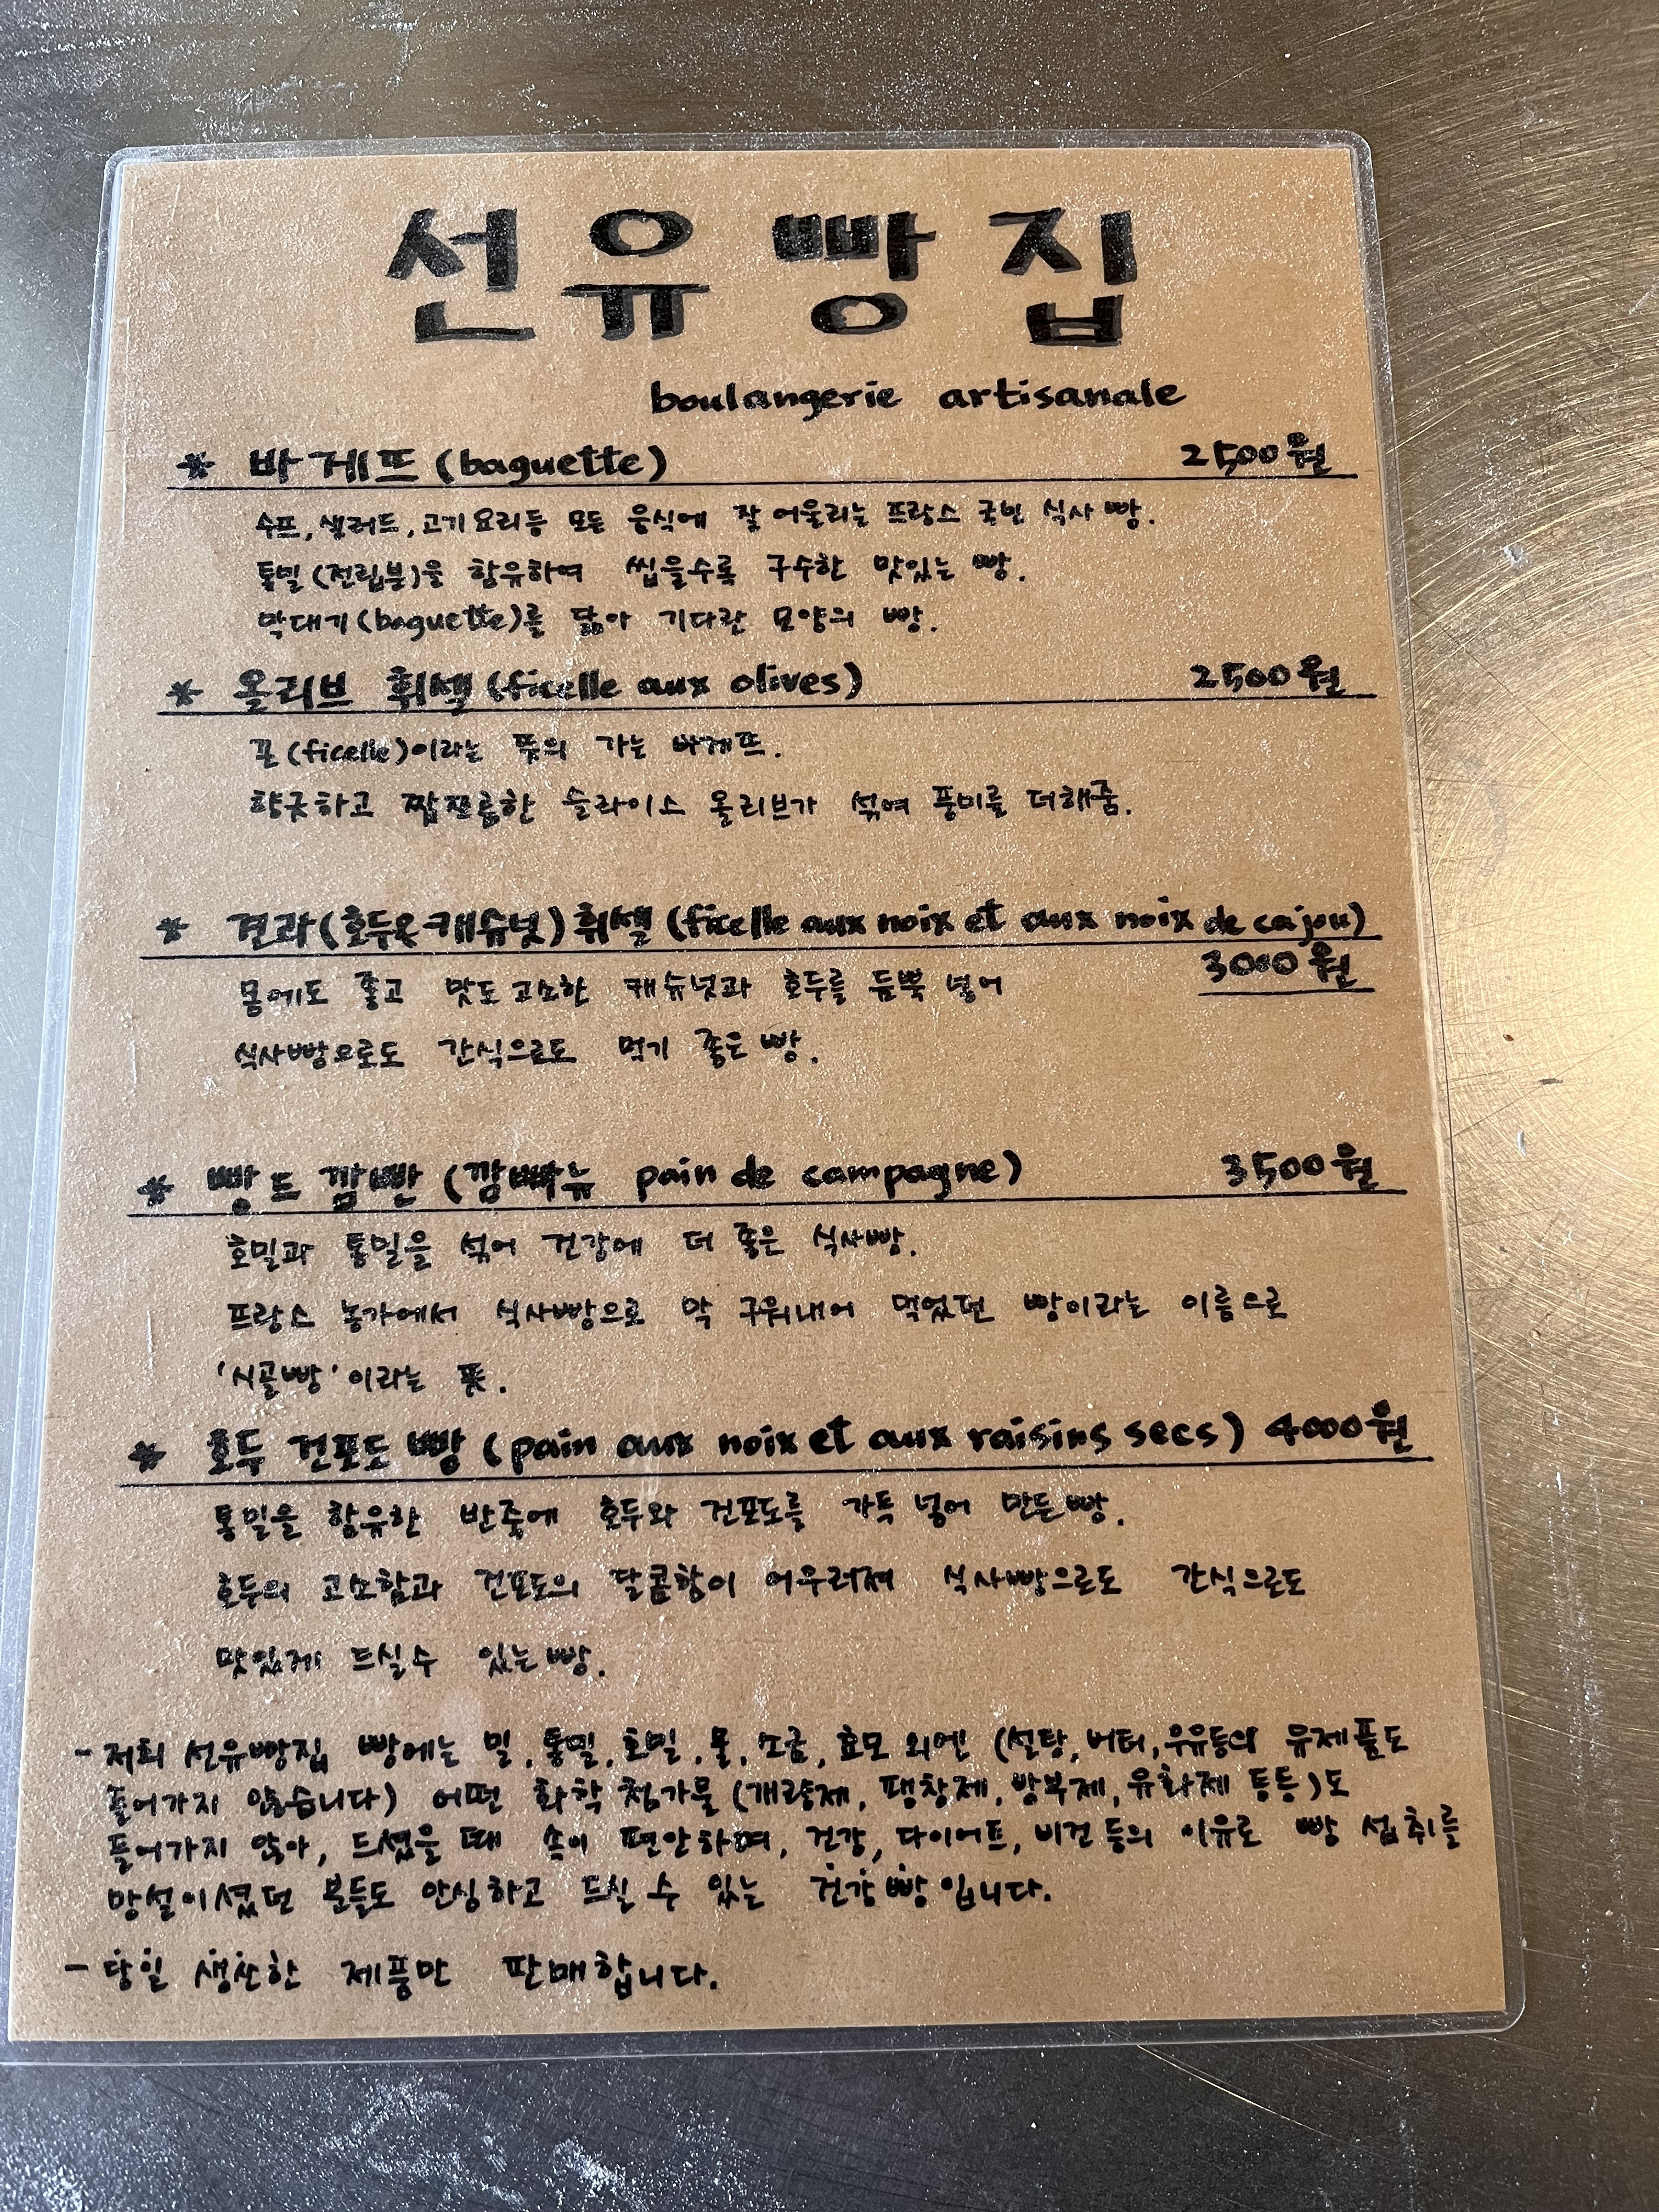 선유빵집
boulangerie artisanale
* 바게뜨 (baguette) 2500원
수프, 샐러드, 고기요리등 모든 음식에 잘 어울리는 프랑스 국민 식사빵.
통밀(전립분)을 함유하여 씹을수록 구수한 맛있는 빵.
막대기(baguette)를 닮아 기다란 모양의 빵.
* 올리브 휘셀 (ficelle aux olives) 2500원
끈(ficelle)이라는 뜻의 가는 바게뜨.
향긋하고 짭쪼름한 슬라이스 올리브가 섞여 풍미를 더해줌.
* 견과(호두&캐슈넛) 휘셀 (ficelle aux noix et aux noix de cajou)
3000원
몸에도 좋고 맛도 고소한 캐슈넛과 호두를 듬뿍 넣어
식사빵으로도 간식으로도 먹기 좋은 빵.
* 빵드 깜빤 (깜빠뉴 pain de campagne) 3500원
호밀과 통밀을 섞어 건강에 더 좋은 식사빵.
프랑스 농가에서 식사빵으로 막 구워내어 먹었던 빵이라는 이름으로
'시골빵'이라는 뜻.
* 호두 건포도 빵 (pain aux noix et aux raisins secs) 4000원
통밀을 함유한 반죽에 호두와 건포도를 가득 넣어 만든 빵.
호두의 고소함과 건포도의 달콤함이 어우러져 식사빵으로도 간식으로도
맛있게 드실수 있는 빵.
- 저희 선유빵집 빵에는 밀, 통밀, 호밀, 물, 소금, 효모 외엔 (설탕, 버터, 우유등의 유제품도
들어가지 않습니다) 어떤 화학 첨가물 (개량제, 팽창제, 방부제, 유화제 등등)도
들어가지 않아, 드셨을 때 속이 편안하며, 건강, 다이어트, 비건 등의 이유로 빵 섭취를
망설이셨던 분들도 안심하고 드실 수 있는 건강빵입니다.
- 당일 생산한 제품만 판매합니다.